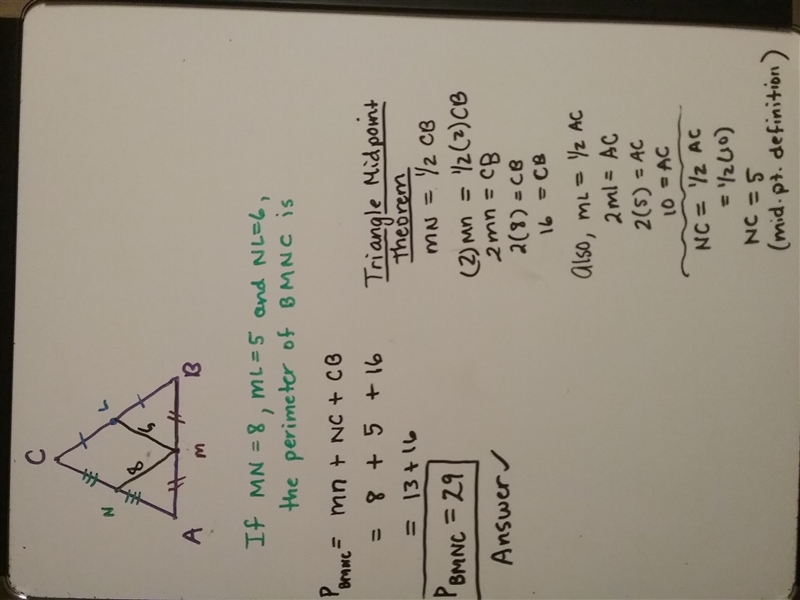 C
N
L
8
5
A
M
B
If MN = 8, ML = 5 and NL = 6,
the perimeter of BMNC is
P BMNC = mn + NC + CB
= 8 + 5 + 16
= 13 + 16
P BMNC = 29
Answer ✓
Triangle Midpoint
theorem
mN = 1/2 CB
(2) Mn = 1/2 (2) CB
2mn = CB
2(8) = CB
16 = CB
also, mL = 1/2 AC
2ml = AC
2(5) = AC
10 = AC
NC = 1/2 AC
= 1/2 (10)
NC = 5
(mid. pt. definition)